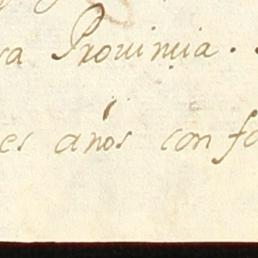 va Prouinçia.
es años con fa